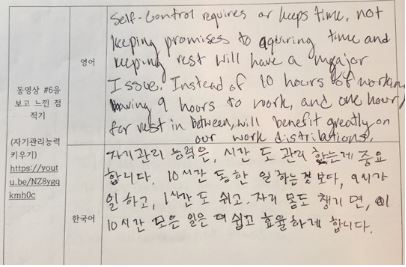 동영상 #6을
보고 느낀 점
적기
(자기관리능력
키우기)
https://yout
u.be/NZ8ygq
kmh0c
영어
Self-Control requires or keeps time, not
keeping promises to aquiring time and
keeping rest will have a major
Issue. Instead of 10 hours of working
having 9 hours to work, and one hour
for rest in between, will benefit greatly on
our work distributions.
한국어
자기관리 능력은, 시간 도 관리 하는게 중요
합니다. 10시간 동한 일 하는것 보다, 9시간
일 하고, 1시간 도 쉬고. 자기 몸도 챙기 면,
10시간 모은 일은 더 쉽고 효율 하게 합니다.